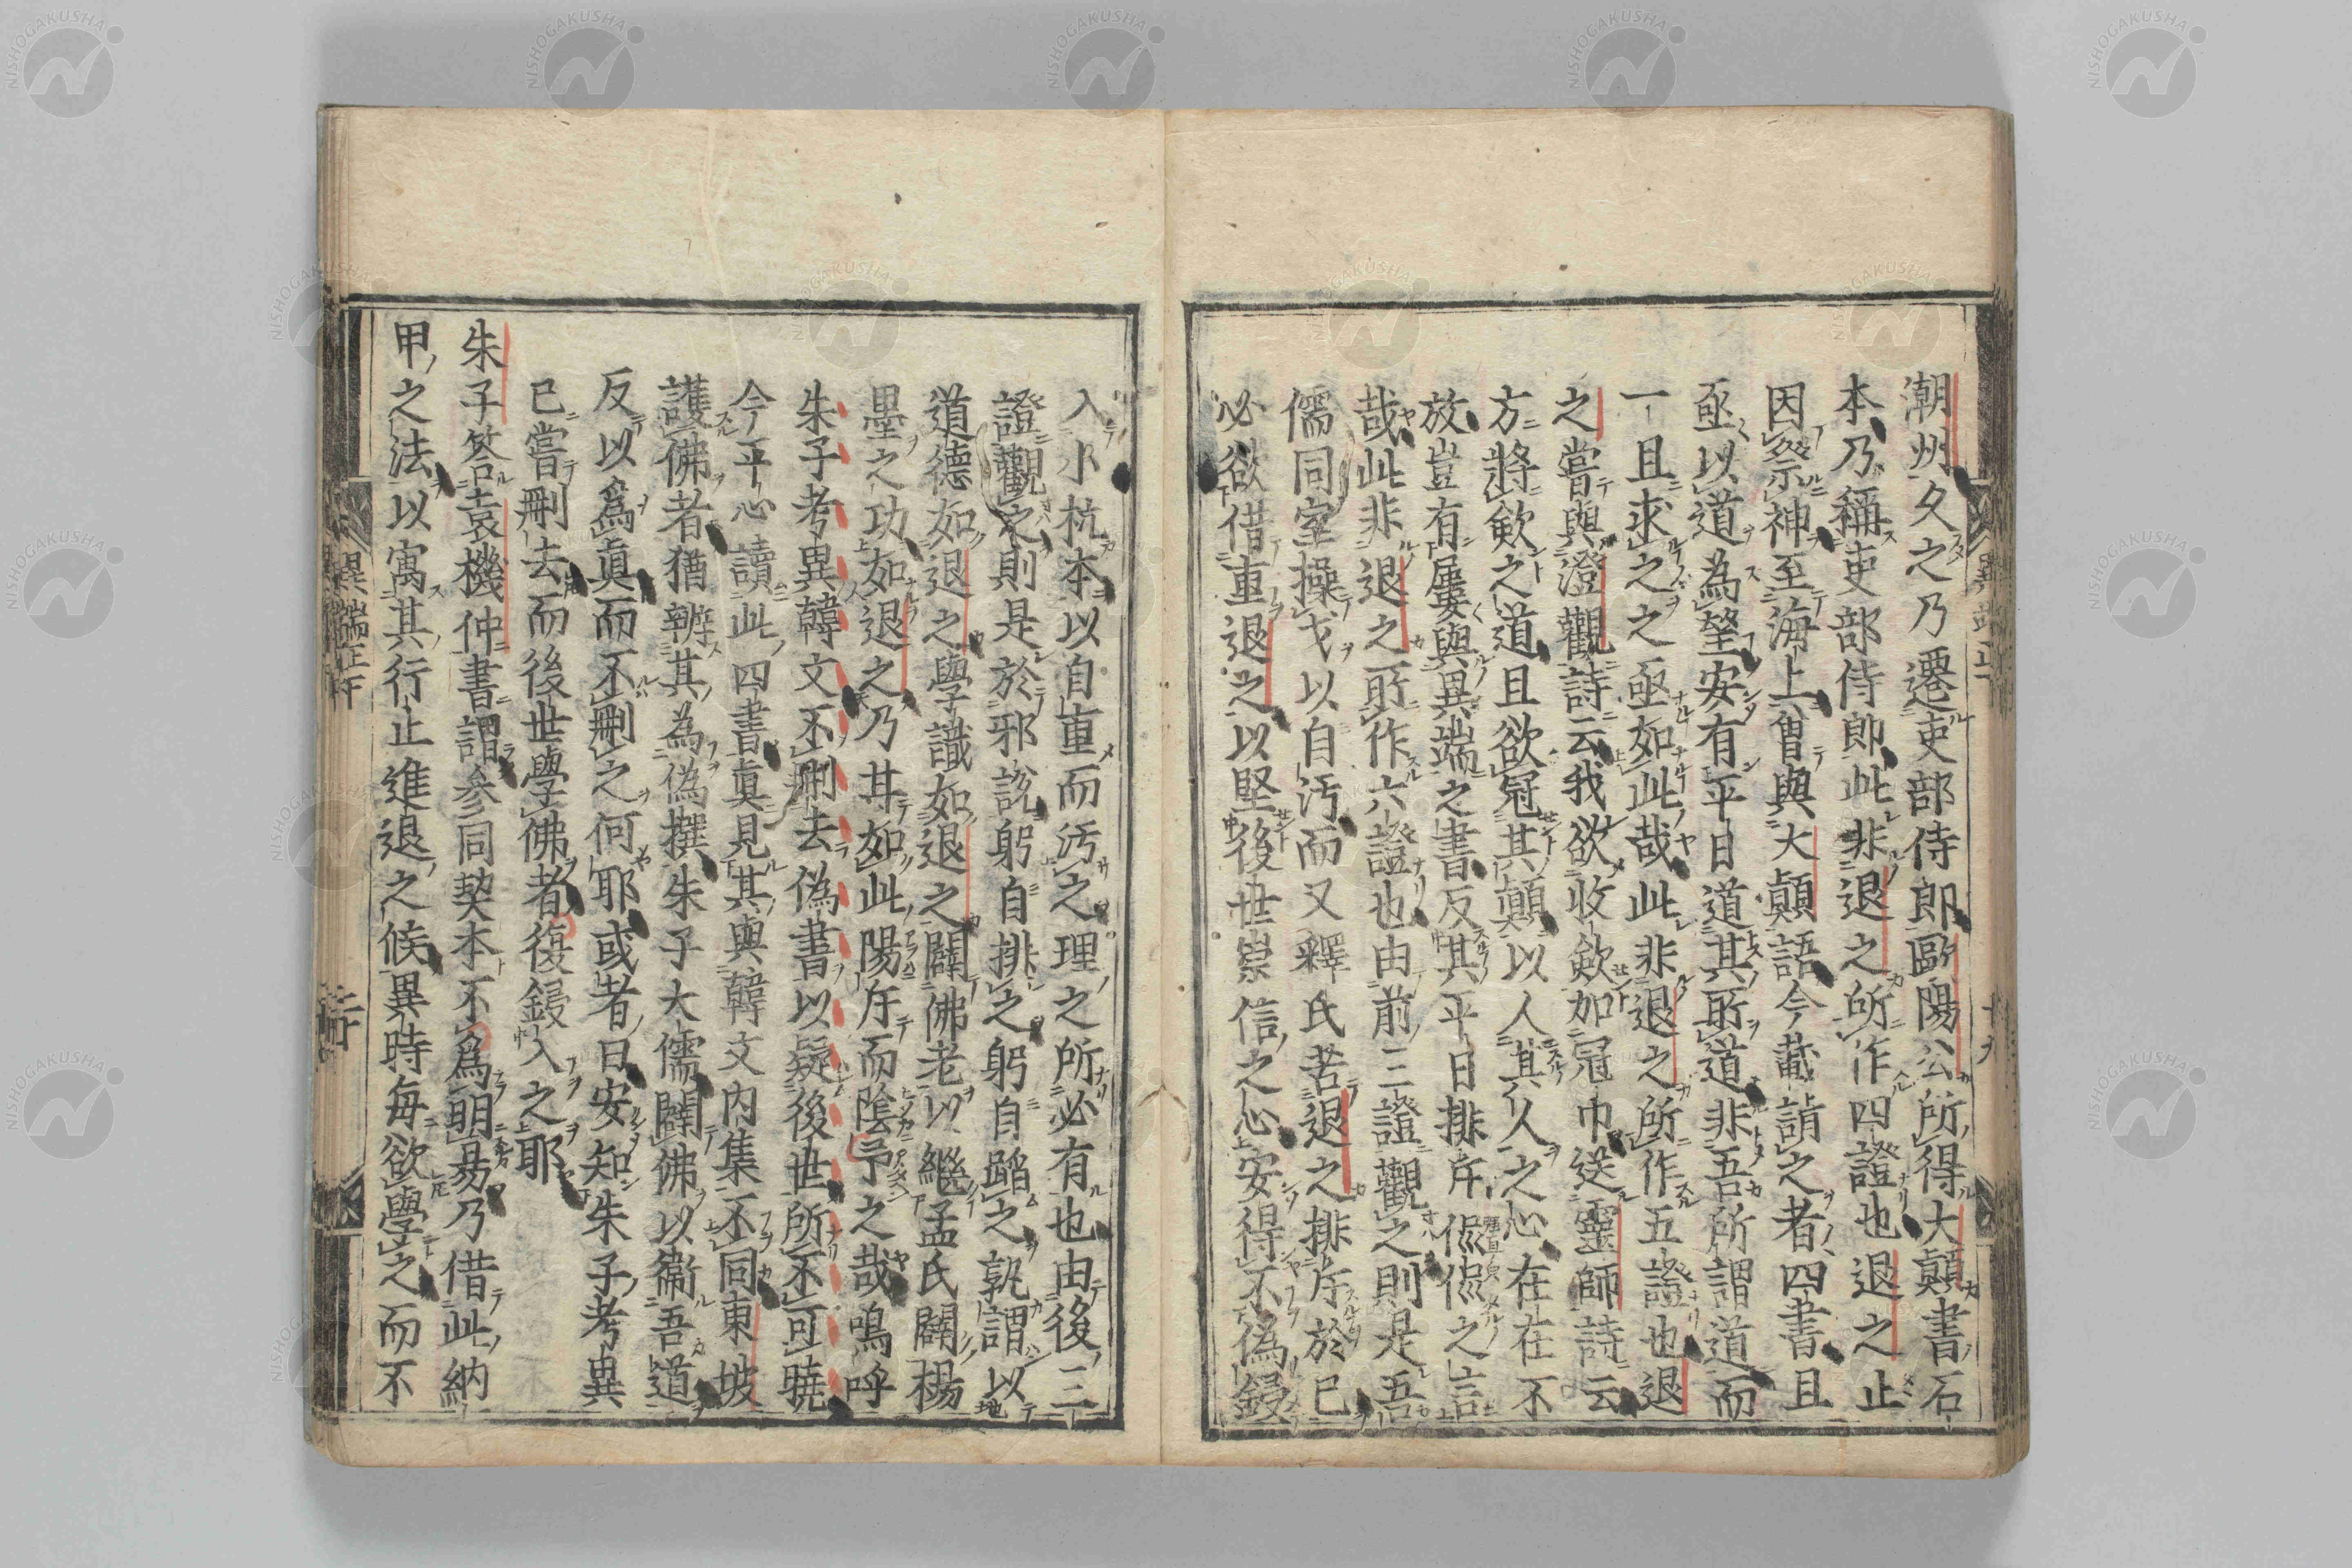 潮州久之乃遷吏部侍郎歐陽公所得大顚書石
本乃稱吏部侍郎此非退之所作四證也退之止
因祭神至海上曾與大顚語今載請之者四書且
亟以道為望安有平日道其所道非吾所謂道而
一旦求之之亟如此哉此非退之所作五證也退
之嘗與澄觀詩云我欲收歛加冠巾送靈師詩云
方將歛之道且欲冠其顚以人其人之心在在不
放豈有屢與異端之書反其平日排斥侃侃之言
哉此非退之所作六證也由前三證觀之則是吾
儒同室操戈以自汚而又釋氏苦退之排斥於已
必欲借重退之以堅後世崇信之心安得不偽鋟
入小杭本以自重而汚之理之所必有也由後三
證觀之則是於邪說躬自排之躬自蹈之孰謂以
道德如退之學識如退之闢佛老以繼孟氏闢楊
墨之功如退之乃其如此陽斥而陰予之哉嗚呼
朱子考異韓文不刪去偽書以疑後世所不可曉
今平心讀此四書眞見其與韓文內集不同東坡
護佛者猶辨其為偽撰朱子大儒闢佛以衞吾道
反以爲眞而不刪之何耶或者曰安知朱子考異
已嘗刪去而後世學佛者復鋟入之耶
朱子答袁機仲書謂參同契本不爲明易乃借此納
甲之法以寓其行止進退之候異時每欲學之而不
異端正下